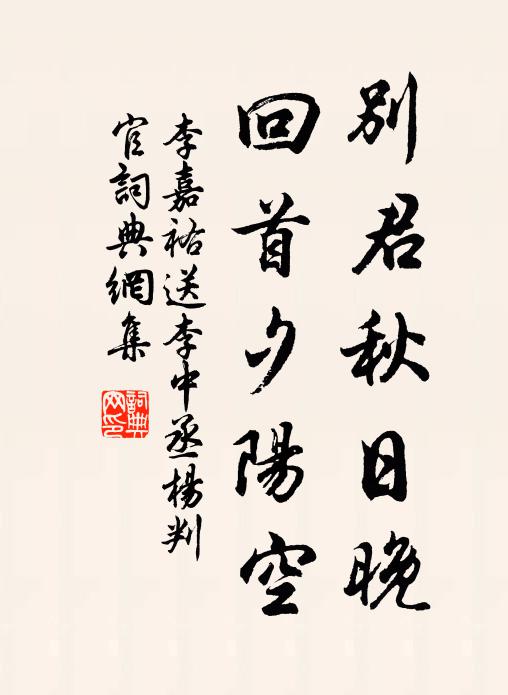 別君秋日晚
回首夕陽空
李嘉祐送李中丞楊判
官詞典網集
詞典
网印